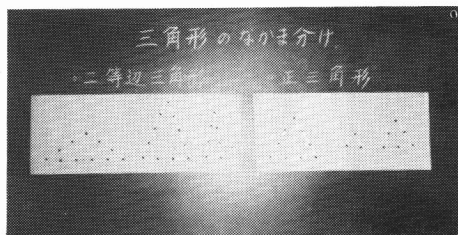 三角形のなかま分け
・二等辺三角形
・正三角形